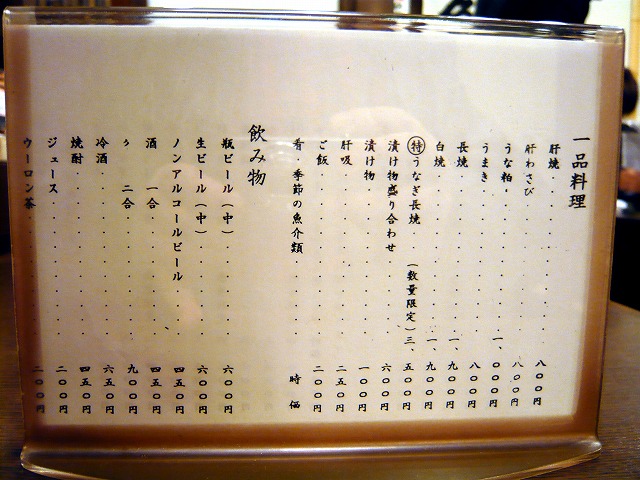 一品料理
肝焼・・・・・・・・八〇〇円
肝わさび・・・・・・・八〇〇円
うな粕・・・・・・・一、〇〇〇円
うまき・・・・・・・・八〇〇円
長焼・・・・・・・・一、九〇〇円
白焼・・・・・・・・一、九〇〇円
㊕うなぎ長焼（数量限定）三、五〇〇円
漬け物盛り合わせ・・・・六〇〇円
漬け物・・・・・・・・一〇〇円
肝吸・・・・・・・・二五〇円
ご飯・・・・・・・・二〇〇円
肴・季節の魚介類・・・・時価
飲み物
瓶ビール（中）・・・・・六〇〇円
生ビール（中）・・・・・六〇〇円
ノンアルコールビール・・・四五〇円
酒 一合・・・・・・四五〇円
〃 二合・・・・・・九〇〇円
冷酒・・・・・・・・六五〇円
焼酎・・・・・・・・四五〇円
ジュース・・・・・・・二〇〇円
ウーロン茶・・・・・・二〇〇円